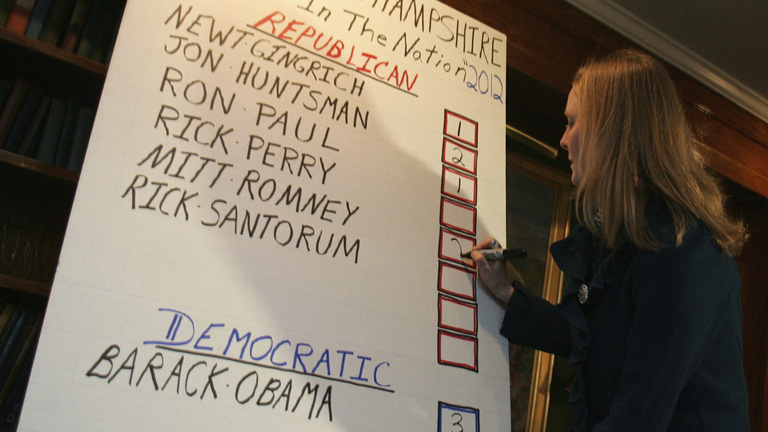 HAMPSHIRE
In The Nation" 2012
REPUBLICAN
NEWT·GINGRICH 1
JON HUNTSMAN 2
RON PAUL 1
RICK·PERRY
MITT·ROMNEY 2
RICK·SANTORUM
DEMOCRATIC
BARACK·OBAMA 3